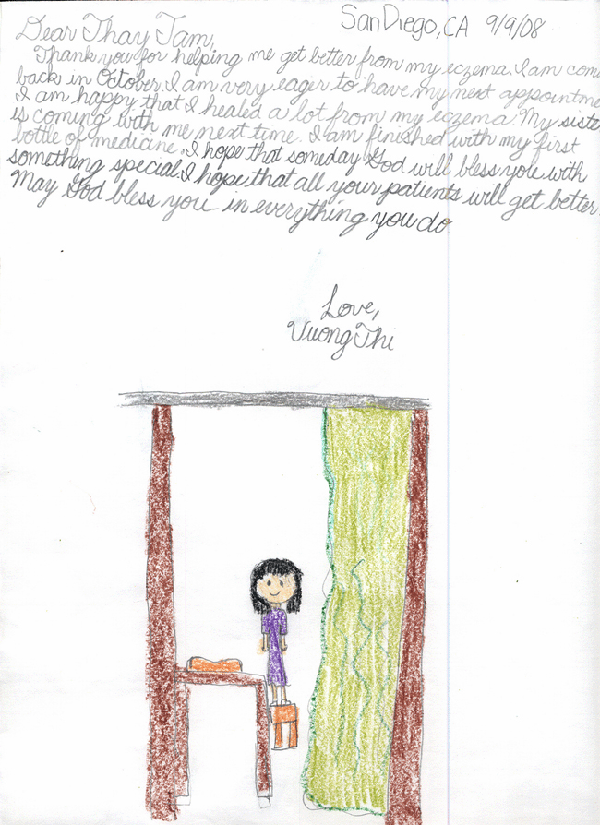 San Diego, CA 9/9/08
Dear Thay Tam,
Thank you for helping me get better from my eczema. I am com
back in October. I am very eager to have my next appointme
I am happy that I healed a lot from my eczema. My siste
is coming with me next time. I am finished with my first
bottle of medicine. I hope that someday God will bless you with
something special. I hope that all your patients will get better.
May God bless you in everything you do
Love,
Vuong Thi